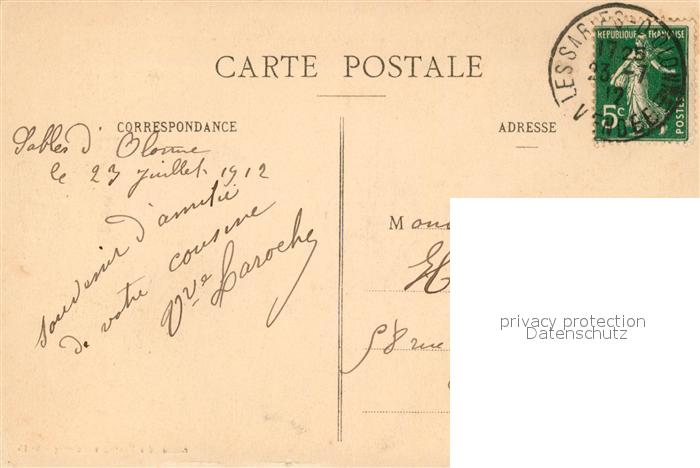 CARTE POSTALE
CORRESPONDANCE
Sables d'Olonne
le 23 Juillet 1912
souvenir d'amitié
de votre cousine
Vve Laroche
ADRESSE
REPUBLIQUE FRANÇAISE
5c
LES SABLES-D'OLONNE
VENDEE
17 25
23 - 7
12
M
58 rue
privacy protection
Datenschutz